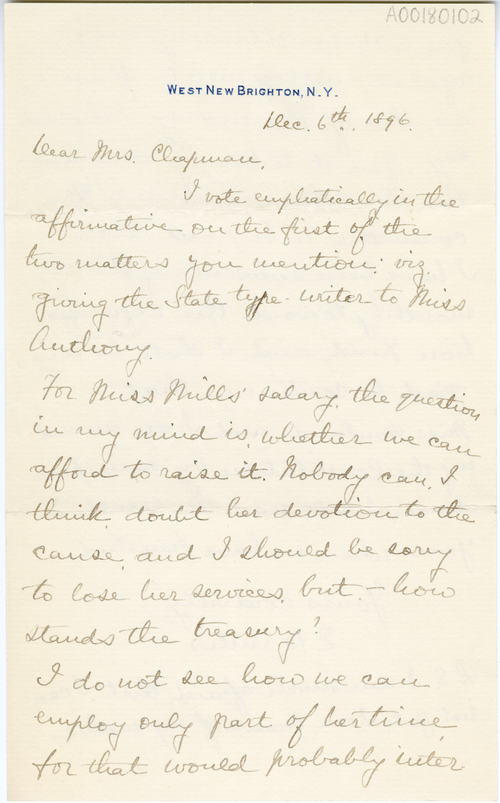 A00180102
WEST NEW BRIGHTON, N.Y.
Dec. 6th, 1896.
Dear Mrs. Chapman,
I vote emphatically in the
affirmative on the first of the
two matters you mention: viz.
giving the State type-writer to Miss
Anthony.
For Miss Mills' salary, the question
in my mind is, whether we can
afford to raise it. Nobody can, I
think, doubt her devotion to the
cause, and I should be sorry
to lose her services, but – how
stands the treasury?
I do not see how we can
employ only part of her time,
for that would probably inter